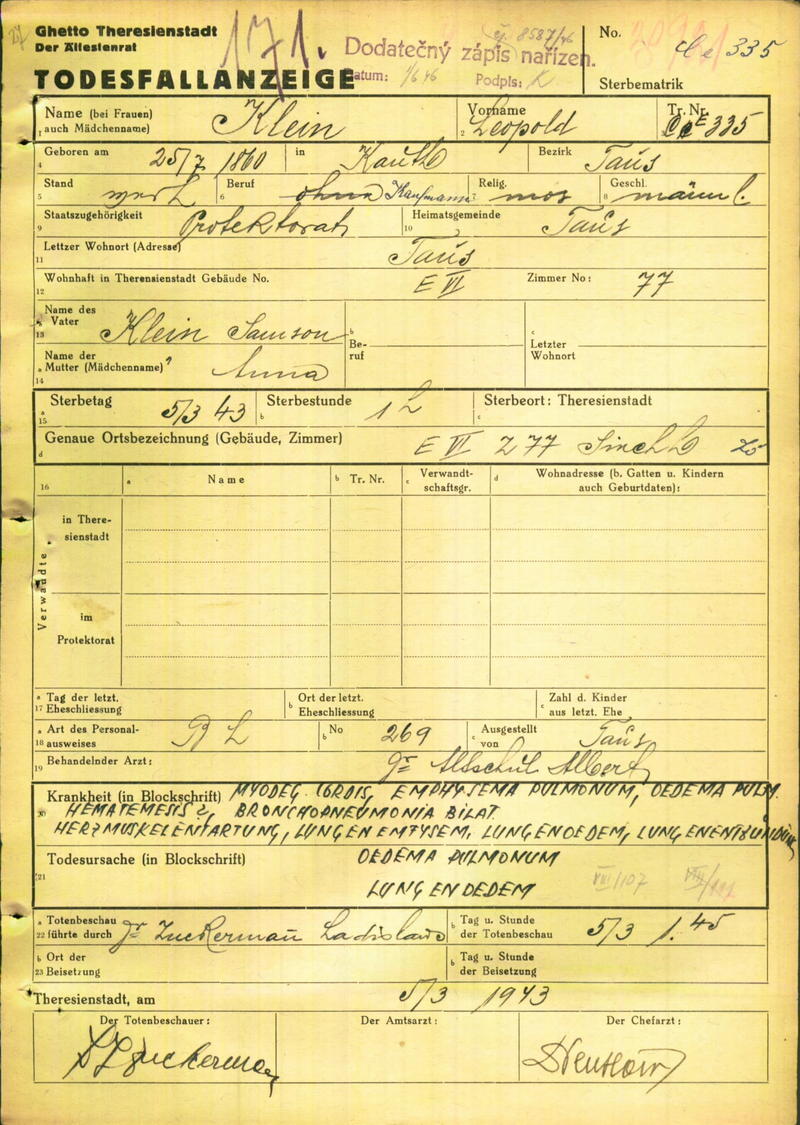 Ghetto Theresienstadt
Der Ältestenrat
TODESFALLANZEIGE
171.
čj. 8587/46
Dodatečný zápis nařízen.
Datum: 1/6 46 Podpis: K
No. Ce 335
Sterbematrik
Name (bei Frauen) auch Mädchenname) Klein
Vorname Leopold
Tr. Nr. 335
Geboren am 25/7 1860 in Kauth Bezirk Taus
Stand Beruf ohne Kaufmann Relig. mos Geschl. männl.
Staatszugehörigkeit Protektorat Heimatsgemeinde Taus
Lettzer Wohnort (Adresse) Taus
Wohnhaft in Therensienstadt Gebäude No. E VI Zimmer No: 77
Name des Vater Klein Samson Beruf Letzter Wohnort
Name der Mutter (Mädchenname) ? Anna
Sterbetag 5/3 43 Sterbestunde 1 h Sterbeort: Theresienstadt
Genaue Ortsbezeichnung (Gebäude, Zimmer) E VI Z 77
16 Name Tr. Nr. Verwandtschaftsgr. Wohnadresse (b. Gatten u. Kindern auch Geburtdaten):
Verwandte
in Theresienstadt
im Protektorat
Tag der letzt. Eheschliessung Ort der letzt. Eheschliessung Zahl d. Kinder aus letzt. Ehe
Art des Personalausweises B L No 269 Ausgestellt von Taus
Behandelnder Arzt: Dr Altschul Albert
Krankheit (in Blockschrift) MYODEG. CORDIS, EMPHYSEMA PULMONUM, OEDEMA PULM.
HEMATEMESIS?, BRONCHOPNEUMONIA BILAT
HERZMUSKELENTARTUNG, LUNGENEMFYSEM, LUNGENOEDEM, LUNGENENTZUNDUNG
Todesursache (in Blockschrift) OEDEMA PULMONUM
LUNGENOEDEM
VIII/107
Totenbeschau führte durch Dr Zuckerman Ladislaus Tag u. Stunde der Totenbeschau 5/3 1.45
Ort der Beisetzung Tag u. Stunde der Beisetzung
Theresienstadt, am 5/3 1943
Der Totenbeschauer: Der Amtsarzt: Der Chefarzt: